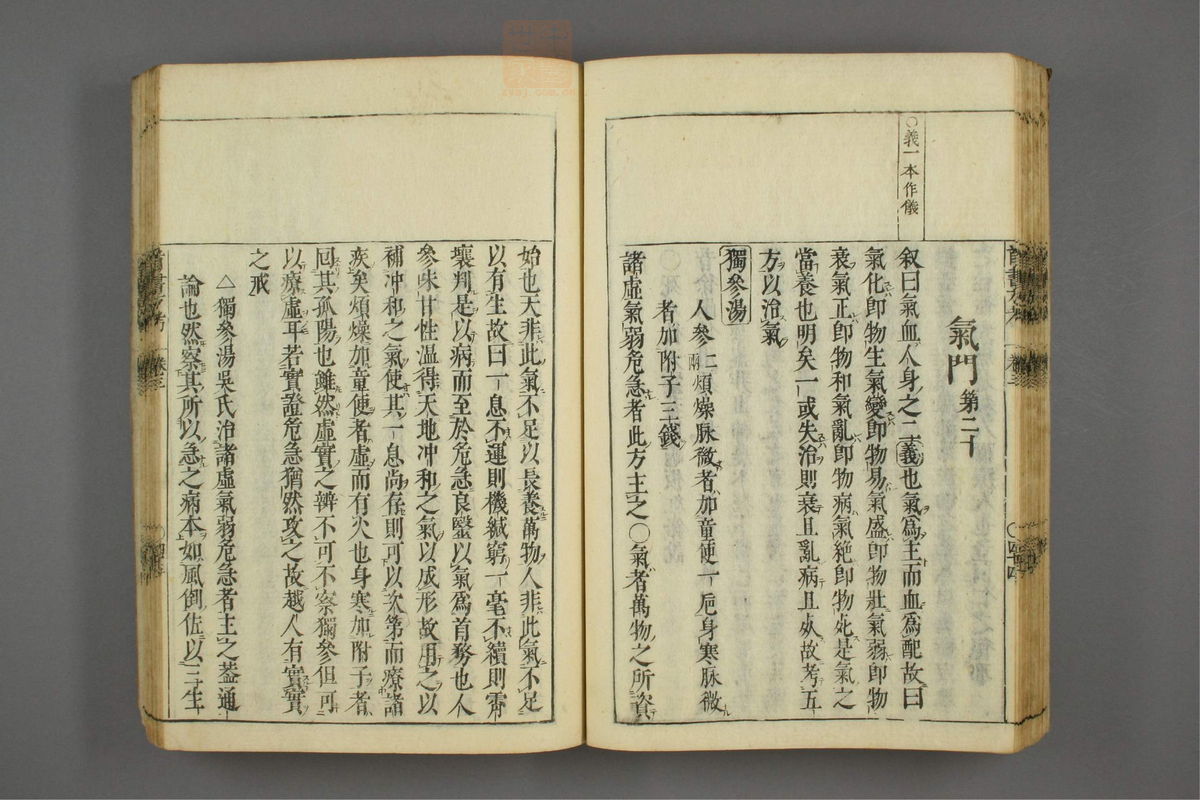 ○義一本作儀
氣門第二十
叙曰氣血人身之二義也氣爲主而血爲配故曰
氣化即物生氣變即物易氣盛即物壯氣弱即物
衰氣正即物和氣亂即物病氣絶即物死是氣之
當養也明矣一或失治則衰且亂病且死故考五
方以治氣
獨參湯
人參二兩煩燥脉微者加童便一巵身寒脉微
者加附子三錢
諸虛氣弱危急者此方主之○氣者萬物之所資
始也天非此氣不足以長養萬物人非此氣不足
以有生故曰一息不運則機緘窮一毫不續則霄
壤判是以病而至於危急良毉以氣爲首務也人
參味甘性温得天地冲和之氣以成形故用之以
補冲和之氣使其一息尚存則可以次第而療諸
疾矣煩燥加童便者虛而有火也身寒加附子者
回其孤陽也雖然虛實之辨不可不察獨參但可
以療虛耳若實證危急猶然攻之故越人有實實
之戒
△獨參湯吳氏治諸虛氣弱危急者主之葢通
論也然察其所以急之病本如風倒佐以三生